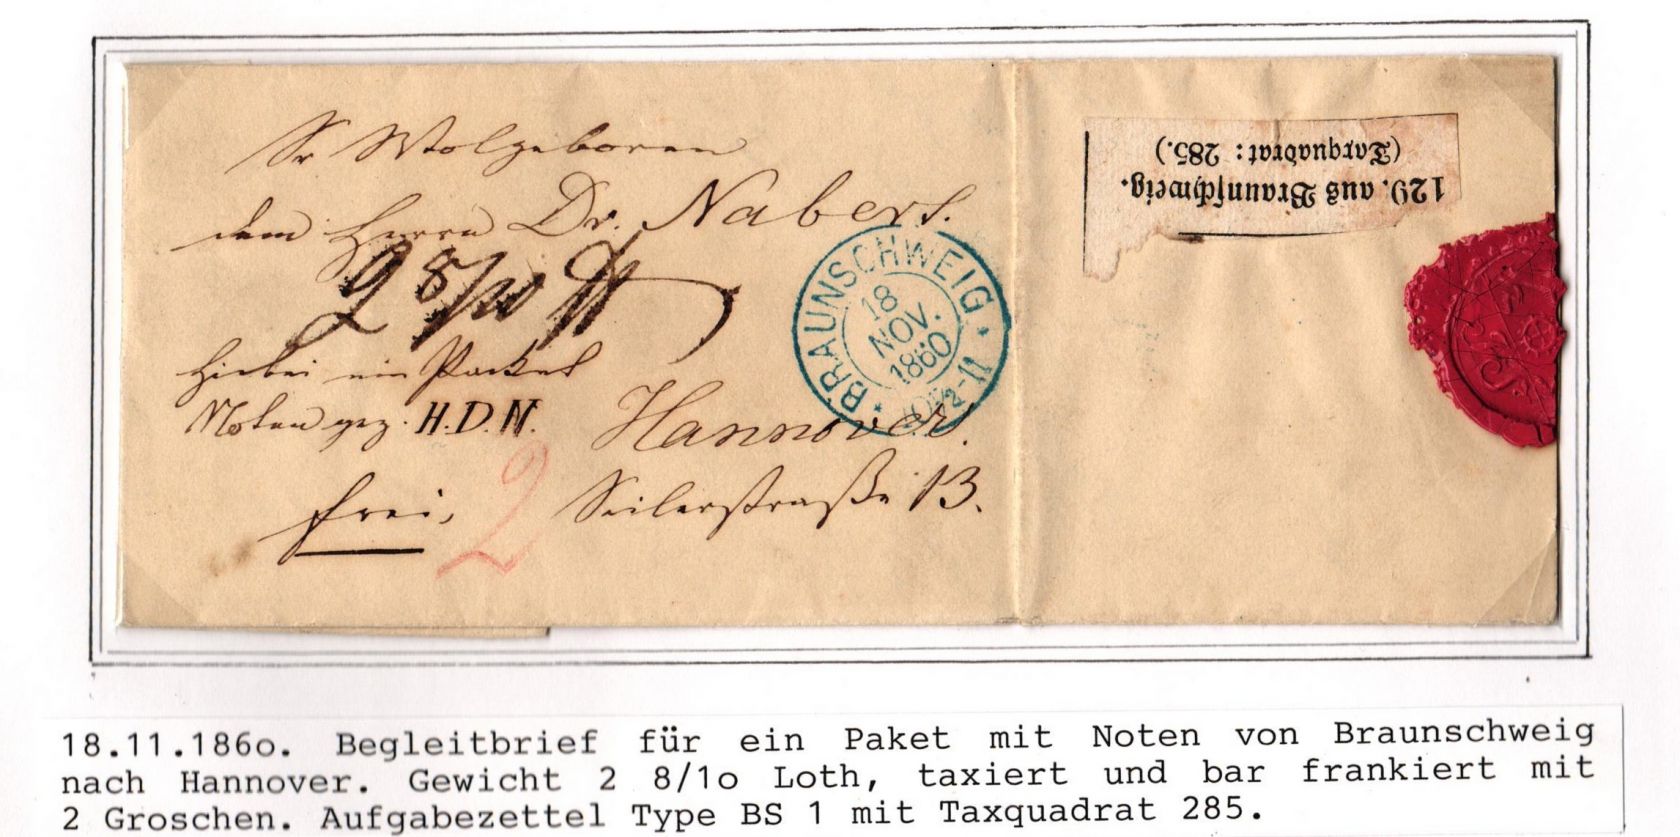 Sr Wolgeboren
dem Herrn Dr. Nabert.
2 8/10 ℔
Hiebei ein Packet
Noten gez. H.D.N.
Hannover.
frei,
2
Seilerstraße 13.
* BRAUNSCHWEIG *
18
NOV.
1860
10½-11
129. aus Braunschweig.
(Taxquadrat: 285.)
18.11.186o. Begleitbrief für ein Paket mit Noten von Braunschweig
nach Hannover. Gewicht 2 8/1o Loth, taxiert und bar frankiert mit
2 Groschen. Aufgabezettel Type BS 1 mit Taxquadrat 285.